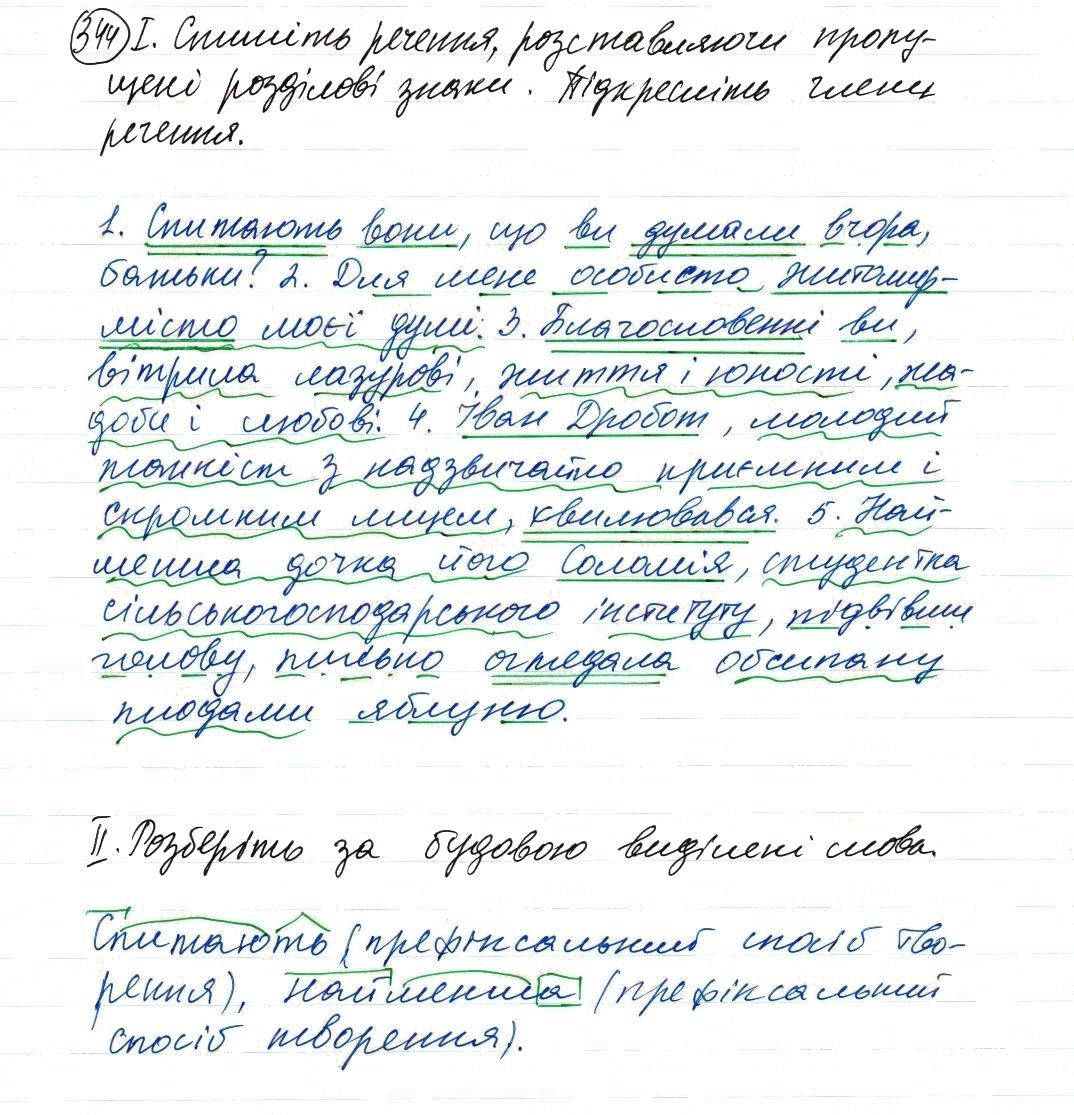 344 I. Спишіть речення, розставляючи пропу-
щені розділові знаки. Підкресліть члени
речення.
1. Спитають вони, що ви думали вчора,
батьки? 2. Для мене особисто Житомир-
місто моєї душі. 3. Благословенні ви,
вітрила лазурові, життя і юності, жа-
доби і любові. 4. Іван Дробот, молодий
танкіст з надзвичайно приємним і
скромним лицем, хвилювався. 5. Най-
менша дочка його Соломія, студентка
сільськогосподарського інституту, підвівши
голову, пильно оглядала обсипану
плодами яблуню.
II. Розберіть за будовою виділені слова.
Спитають (префіксальний спосіб тво-
рення), найменша (префіксальний
спосіб творення).